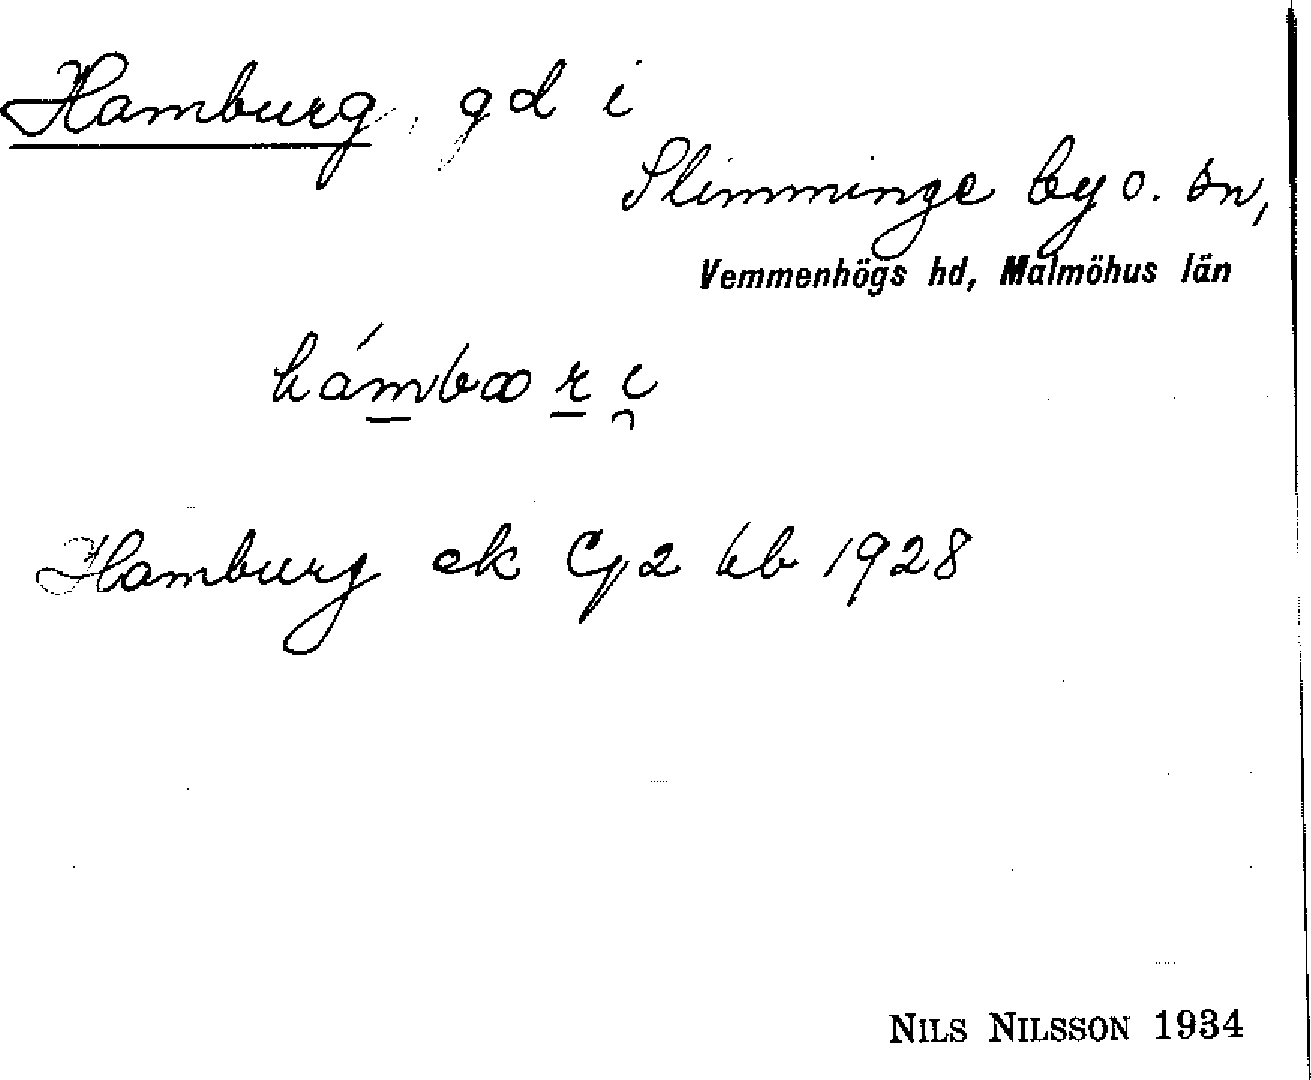 Hamburg, gd i
Slimminge by o. sn,
Vemmenhögs hd, Malmöhus län
Hamburg ek C42 kb 1928
NILS NILSSON 1934